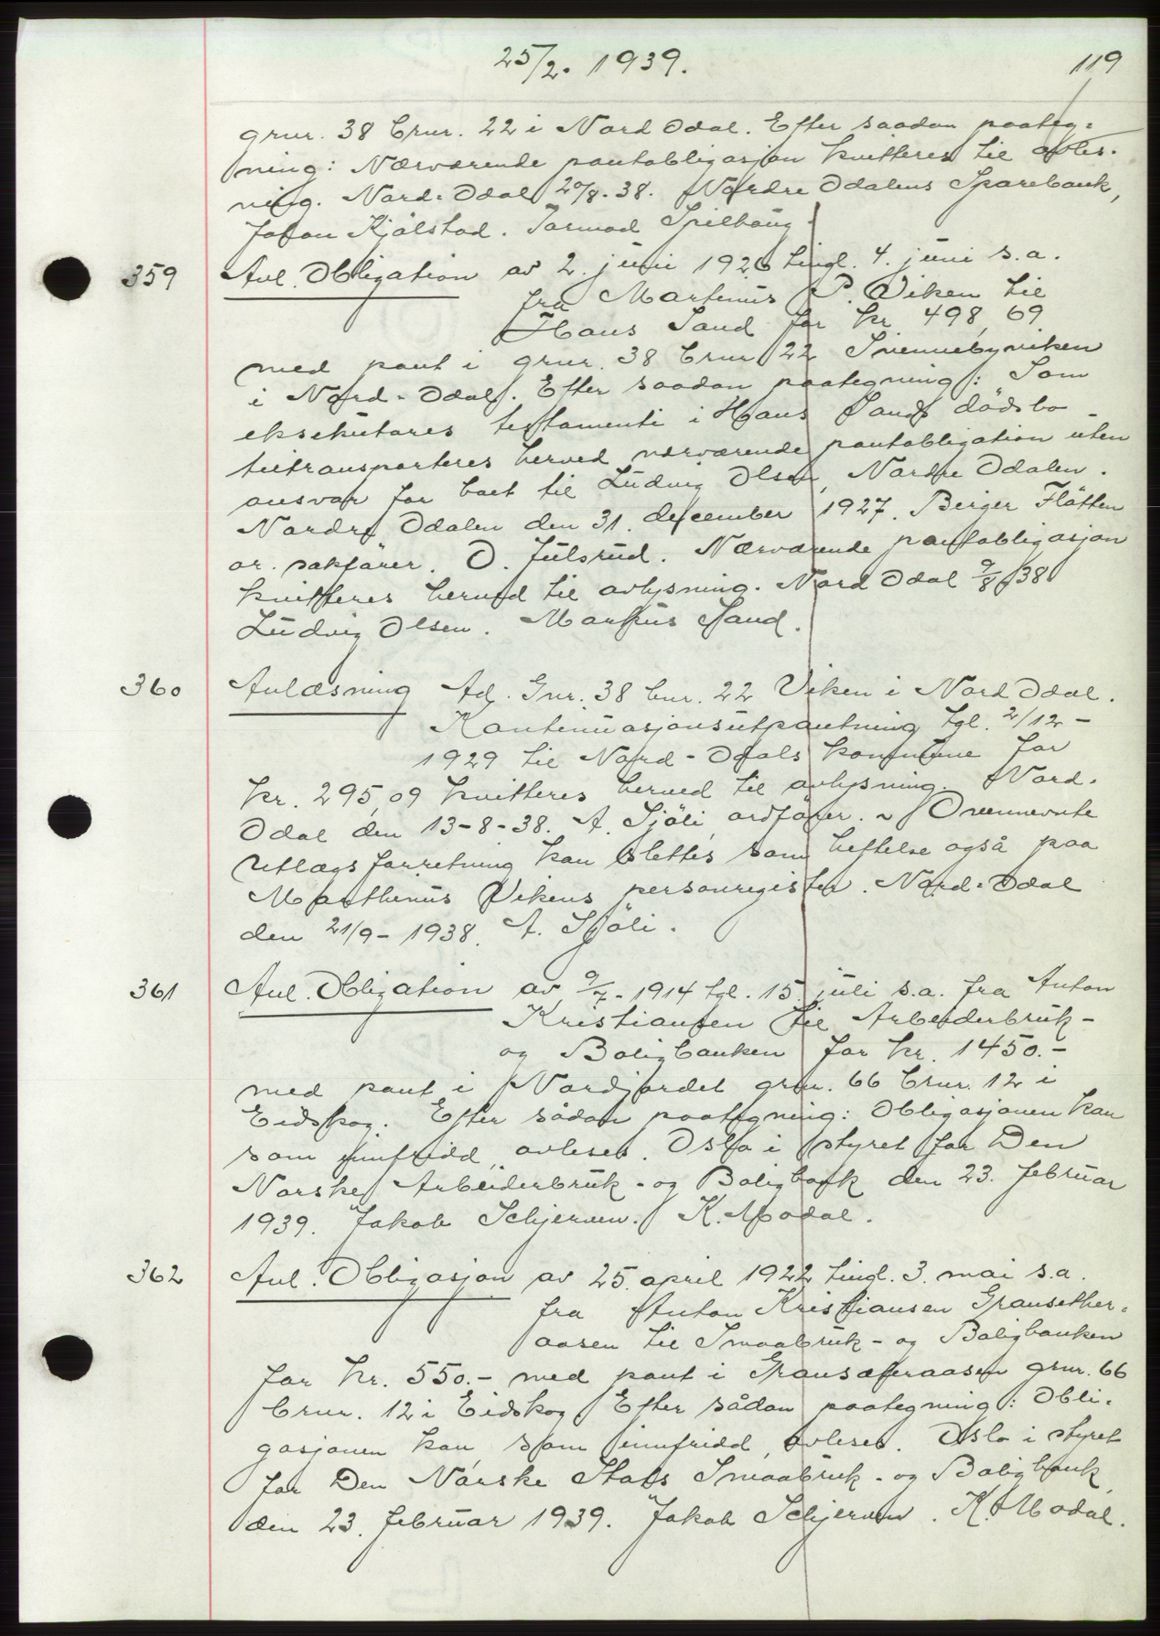 25/2. 1939.
119
gnr. 38 bnr. 22 i Nord Odal. Efter saadan paateg=
ning: Nærværende pantobligasjon kvitteres til avles-
ning. Nord-Odal 20/8-38. Nordre Odalens Sparebank,
Johan Kjølstad. Tormod Spilhaug.
359 Avl. Obligation av 2. juni 1926 tingl. 4. juni s.a.
fra Martinus P. Viken til
Hans Sand for kr. 498,69
med pant i gnr. 38 bnr 22 Svennebyviken
i Nord-Odal. Efter saadan paategning: Som
eksekutores testamenti i Hans Sands dødsbo -
tiltransporteres herved nærværende pantobligation uten
ansvar for boet til Ludvig Olsen, Nordre Odalen.
Nordre Odalen den 31. december 1927. Berger Flåtten
or. sakfører. O. Julsrud. Nærværende pantobligasjon
kvitteres herved til avlysning. Nord Odal 9/8-38
Ludvig Olsen. Markus Sand.
360 Avlæsning Ad. Gnr. 38 bnr. 22 Viken i Nord Odal.
Kontenuasjonsutpantning tgl. 2/12-
1929 til Nord-Odals kommune for
kr. 295,09 kvitteres herved til avlysning. Nord-
Odal den 13-8-38. A. Sjöli, ordförer. ~ Ovennevnte
utlægsforretning kan slettes som heftelse også paa
Marthinus Vikens personregister. Nord-Odal
den 21/9-1938. A. Sjöli.
361 Avl. Obligation av 9/7-1914 tgl. 15. juli s.a. fra Anton
Kristiansen til Arbeiderbruk-
og Boligbanken for kr. 1450.-
med pant i Nordjordet gnr. 66 bnr. 12 i
Eidskog. Efter sådan paategning: Obligasjonen kan
som innfridd, avleses. Oslo i styret for Den
Norske Arbeiderbruk- og Boligbank den 23. februar
1939. Jakob Schjerven. K. Modal.
362 Avl. Obligasjon av 25. april 1922 tingl. 3. mai s.a.
fra Anton Kristiansen Gransether=
aasen til Smaabruk- og Boligbanken
for kr. 550.- med pant i Gransæteraasen gnr. 66
bnr. 12 i Eidskog Efter sådan paategning: Obli-
gasjonen kan som innfridd, avleses. Oslo i styret
for Den Norske Stats Smaabruk- og Boligbank,
den 23. februar 1939. Jakob Schjerven. K. Modal.